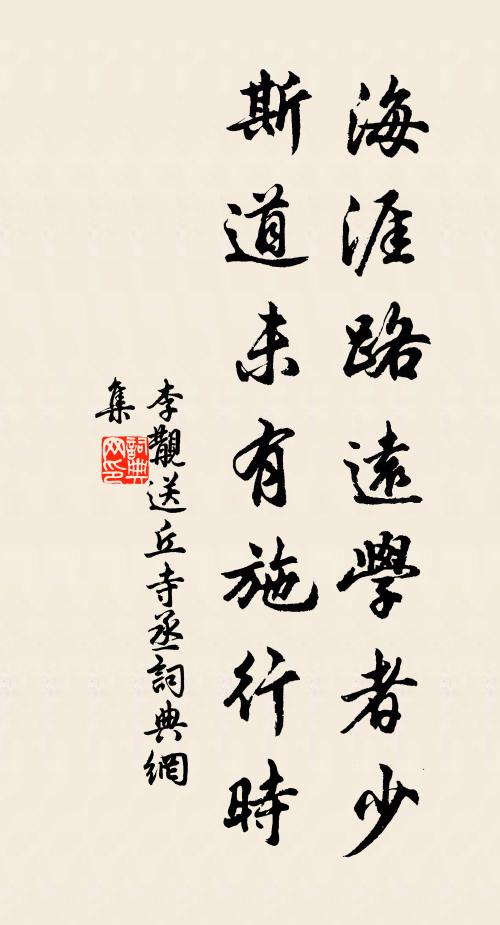 海涯路遠學者少
斯道未有施行時
李覯送丘寺丞詞典網
集
詞典网印